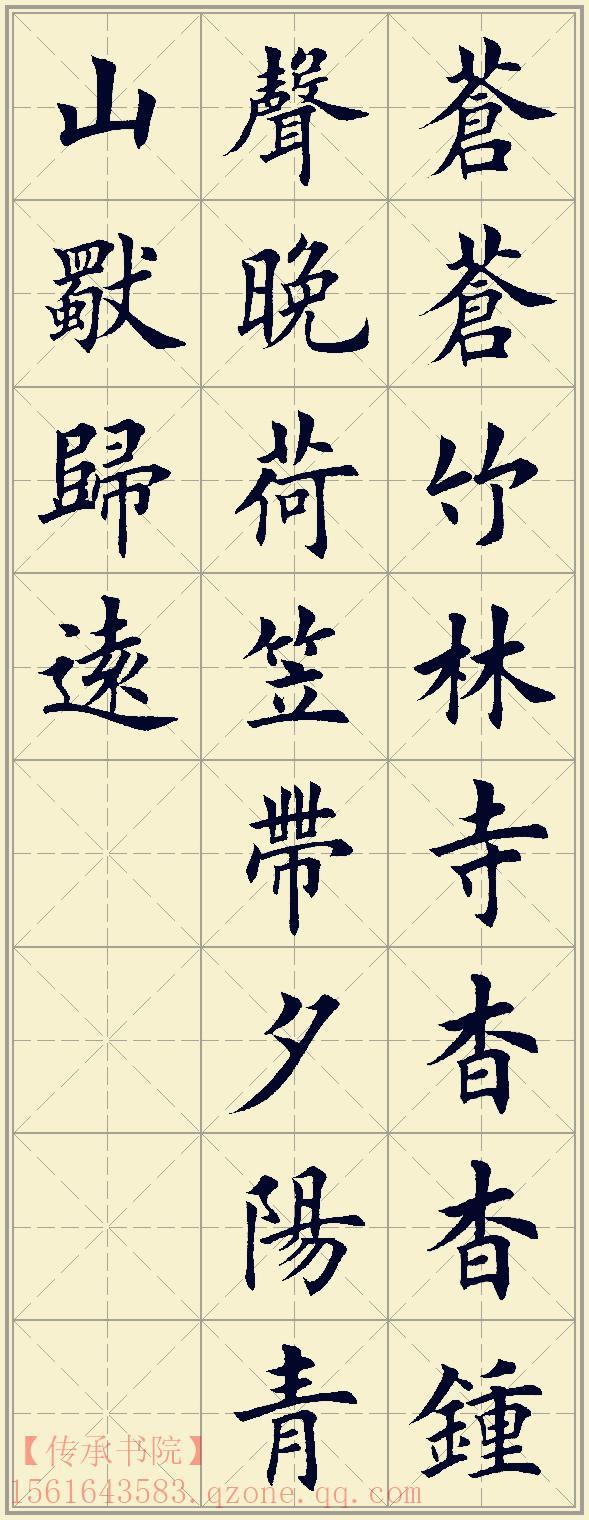 蒼蒼竹林寺杳杳鍾
聲晚荷笠帶夕陽青
山獨歸遠
【传承书院】
1561643583.qzone.qq.com